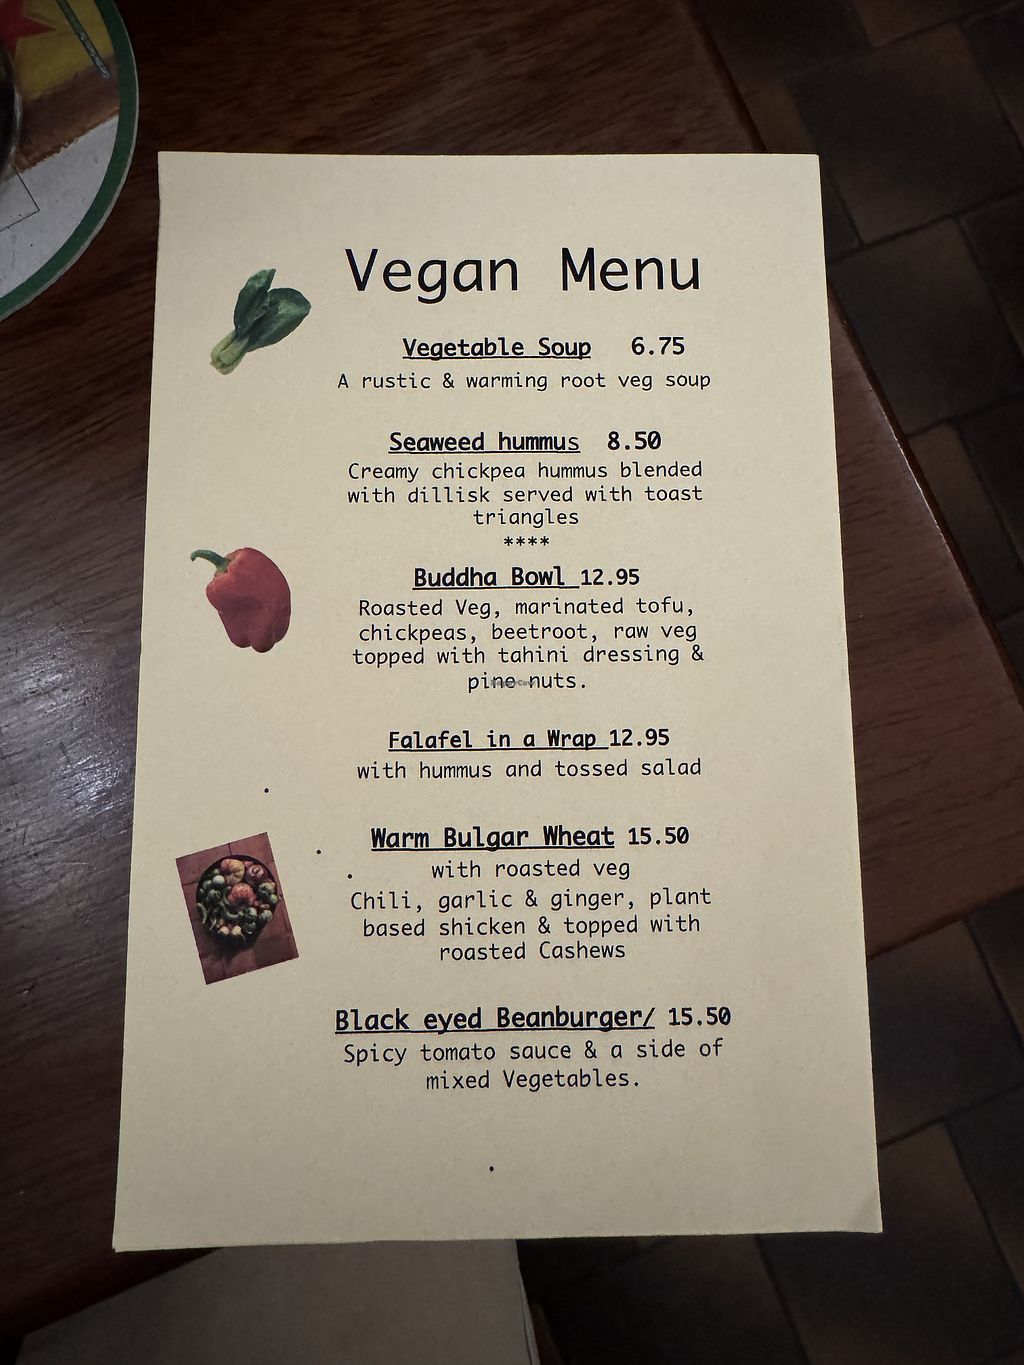 Vegan Menu
Vegetable Soup 6.75
A rustic & warming root veg soup
Seaweed hummus 8.50
Creamy chickpea hummus blended
with dillisk served with toast
triangles
****
Buddha Bowl 12.95
Roasted Veg, marinated tofu,
chickpeas, beetroot, raw veg
topped with tahini dressing &
pine nuts.
HappyCow
Falafel in a Wrap 12.95
with hummus and tossed salad
Warm Bulgar Wheat 15.50
with roasted veg
Chili, garlic & ginger, plant
based shicken & topped with
roasted Cashews
Black eyed Beanburger/ 15.50
Spicy tomato sauce & a side of
mixed Vegetables.